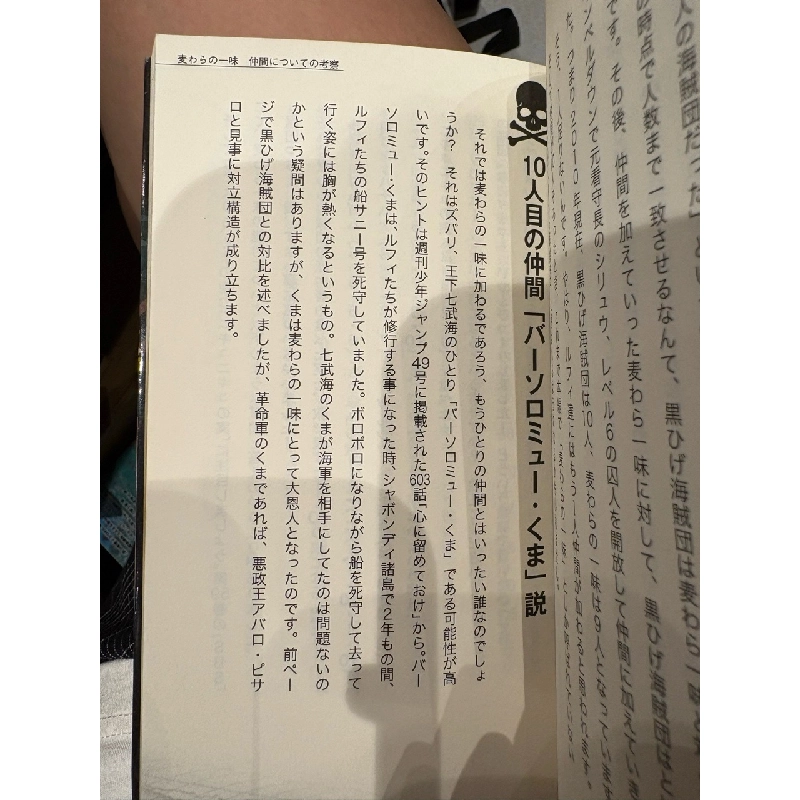 人の海賊団だった」とい
の時点で人数まで一致させるなんて、黒ひげ海賊団は麦わら一味と
です。その後、仲間を加えていった麦わら一味に対して、黒ひげ海賊団は
ンペルダウンで元看守長のシリュウ、レベル6の囚人を開放して仲間に加えていき
た。つまり2010年現在、黒ひげ海賊団は10人、麦わらの一味は9人となっています
人足りないんです。やはり、ルフィ達にはもう1人仲間が加わると思われます。
麦わらの一味 仲間についての考察
10人目の仲間「バーソロミュー・くま」説
それでは麦わらの一味に加わるであろう、もうひとりの仲間とはいったい誰なのでしょ
うか? それはズバリ、王下七武海のひとり「バーソロミュー・くま」である可能性が高
いです。そのヒントは週刊少年ジャンプ49号に掲載された603話「心に留めておけ」から。バー
ソロミュー・くまは、ルフィたちが修行する事になった時、シャボンディ諸島で2年もの間、
ルフィたちの船サニー号を死守していました。ボロボロになりながら船を死守して去って
行く姿には胸が熱くなるというもの。七武海のくまが海軍を相手にしてたのは問題ないの
かという疑問はありますが、くまは麦わらの一味にとって大恩人となったのです。前ペー
ジで黒ひげ海賊団との対比を述べましたが、革命軍のくまであれば、悪政王アバロ・ピサ
ロと見事に対立構造が成り立ちます。